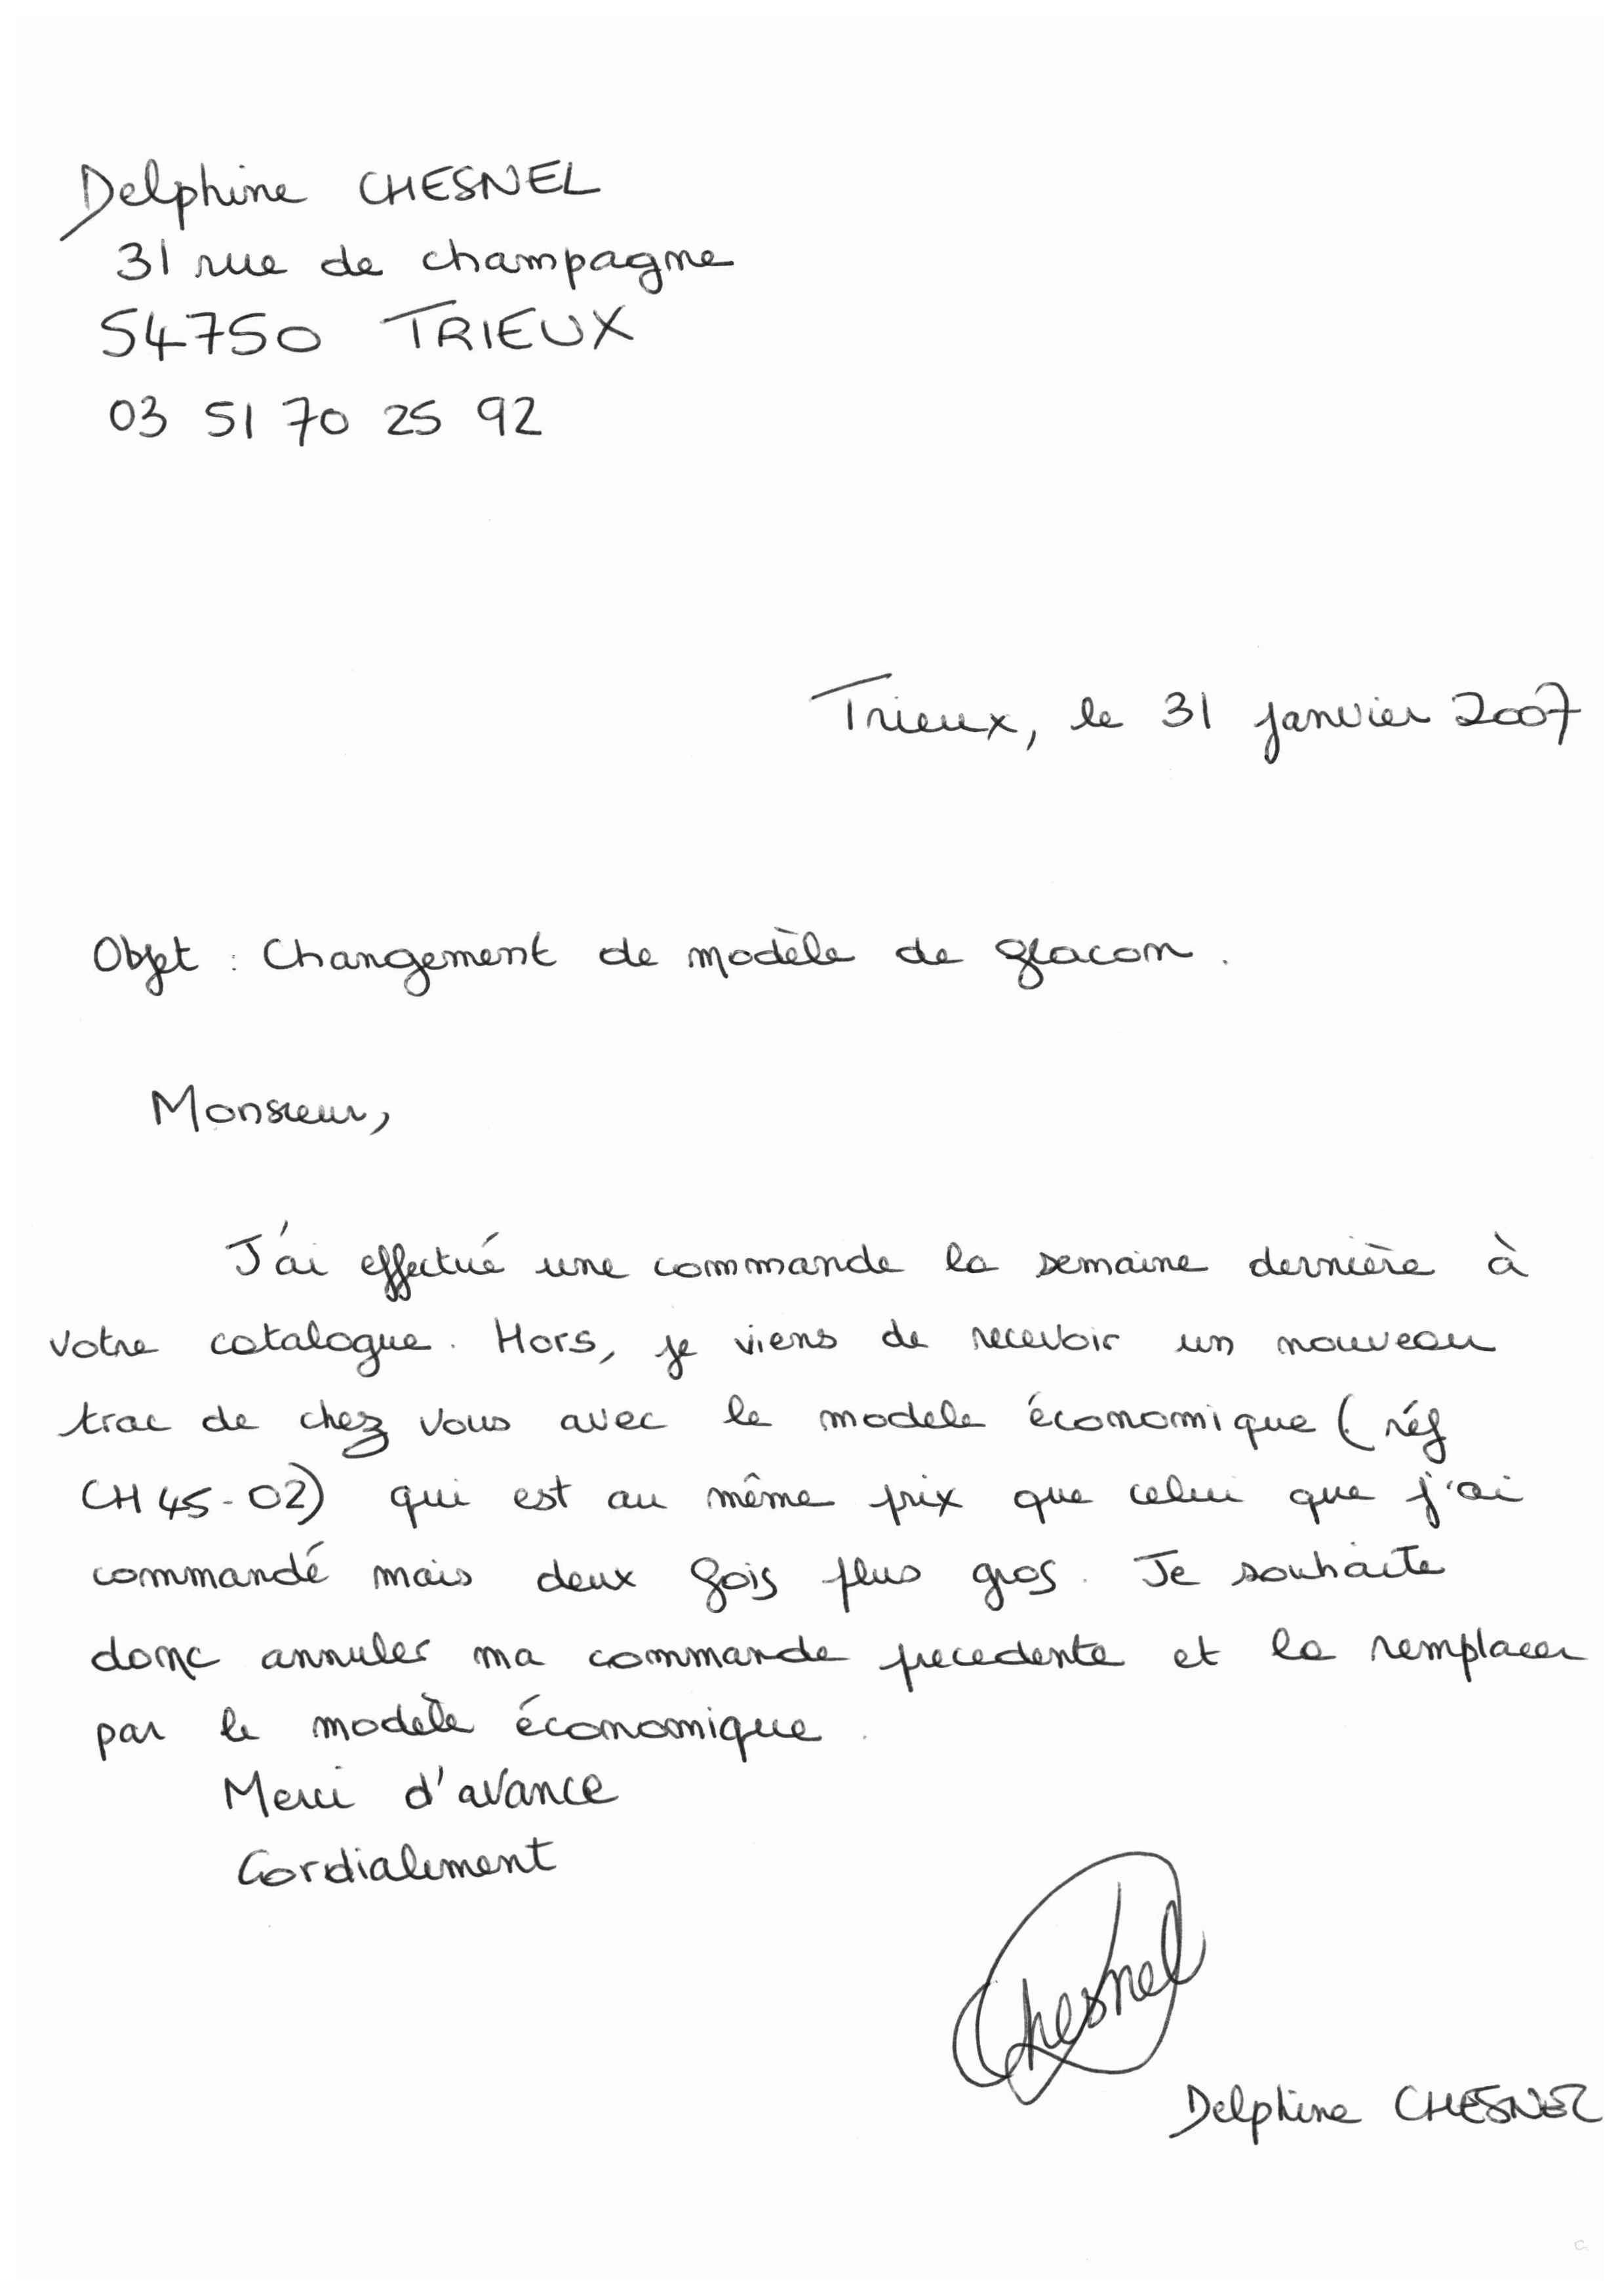 Delphine CHESNEL
31 rue de champagne
54750 TRIEUX
03 51 70 25 92
Trieux, le 31 janvier 2007
Objet : Changement de modèle de flacon.
Monsieur,
J'ai effectué une commande la semaine dernière à
votre catalogue. Hors, je viens de recevoir un nouveau
trac de chez vous avec le modele économique (réf
CH45-02) qui est au même prix que celui que j'ai
commandé mais deux fois plus gros. Je souhaite
donc annuler ma commande precedente et la remplacer
par le modèle économique.
Merci d'avance
Cordialement
Chesnel
Delphine CHESNEL